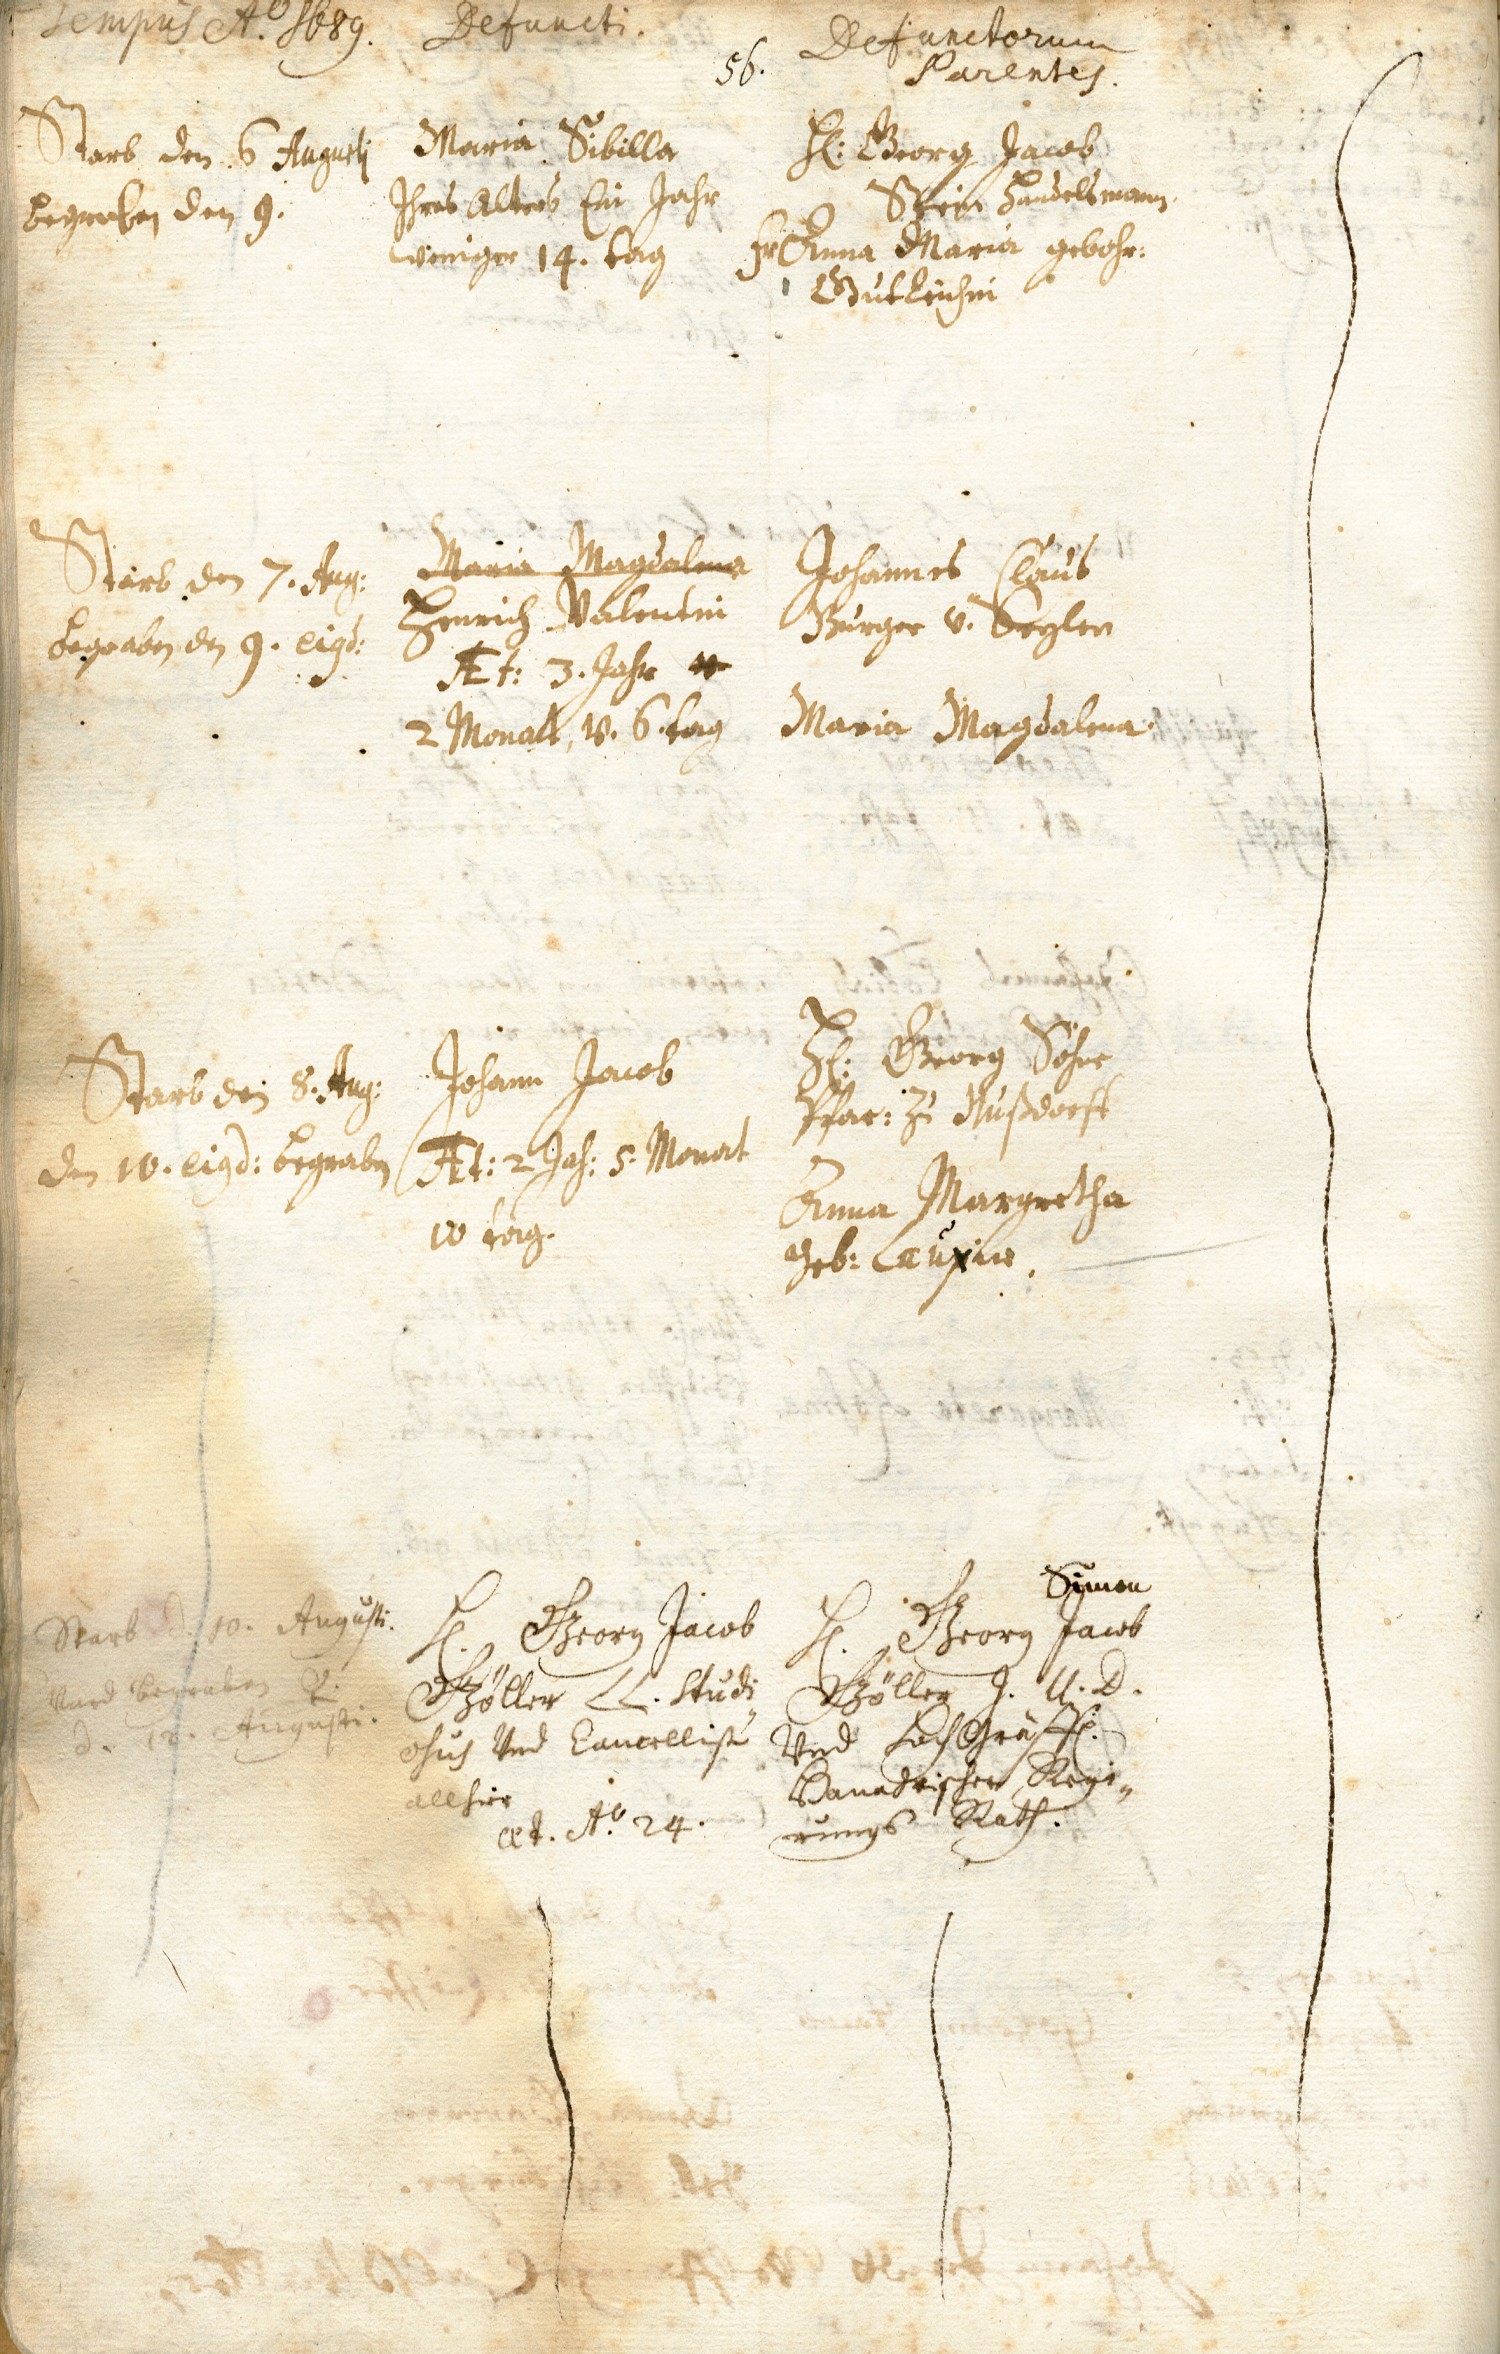 Tempus Aō 1689.
Defuncti.
56.
Defunctorum
Parentes.
Starb den 6 Augusti
begraben den 9.
Maria Sibilla
Ihres Alters Ein Jahr
weniger 14. tag
H: Georg Jacob
Stein Handelsmann.
fr Anna Maria gebohr:
Starb den 7. Aug:
begraben den 9. eigd:
Maria Magdalena
Henrich Valentin
Æt: 3. Jahr
2 Monatt, v. 6. tag
Johannes Claus
Burger v. Seyler
Maria Magdalena.
Starb den 8. Aug:
den 10. eigd: begraben
Johann Jacob
Æt: 2 Jah: 5. Monat
10 tag.
H: Georg Söhne
Pfar: zu Nußdorff
Anna Margretha
geb:
Starb d. 10. Augusti.
Vnd begraben
d. 12. Augusti.
H. Georg Jacob
Göller LL. Studi-
osus Vnd Cancellist
allhier
æt. Aō 24.
Simon
H. Georg Jacob
Göller J. U. D.
Vnd HochGräffl.
Hanauischer Regi-
rungs Rath.